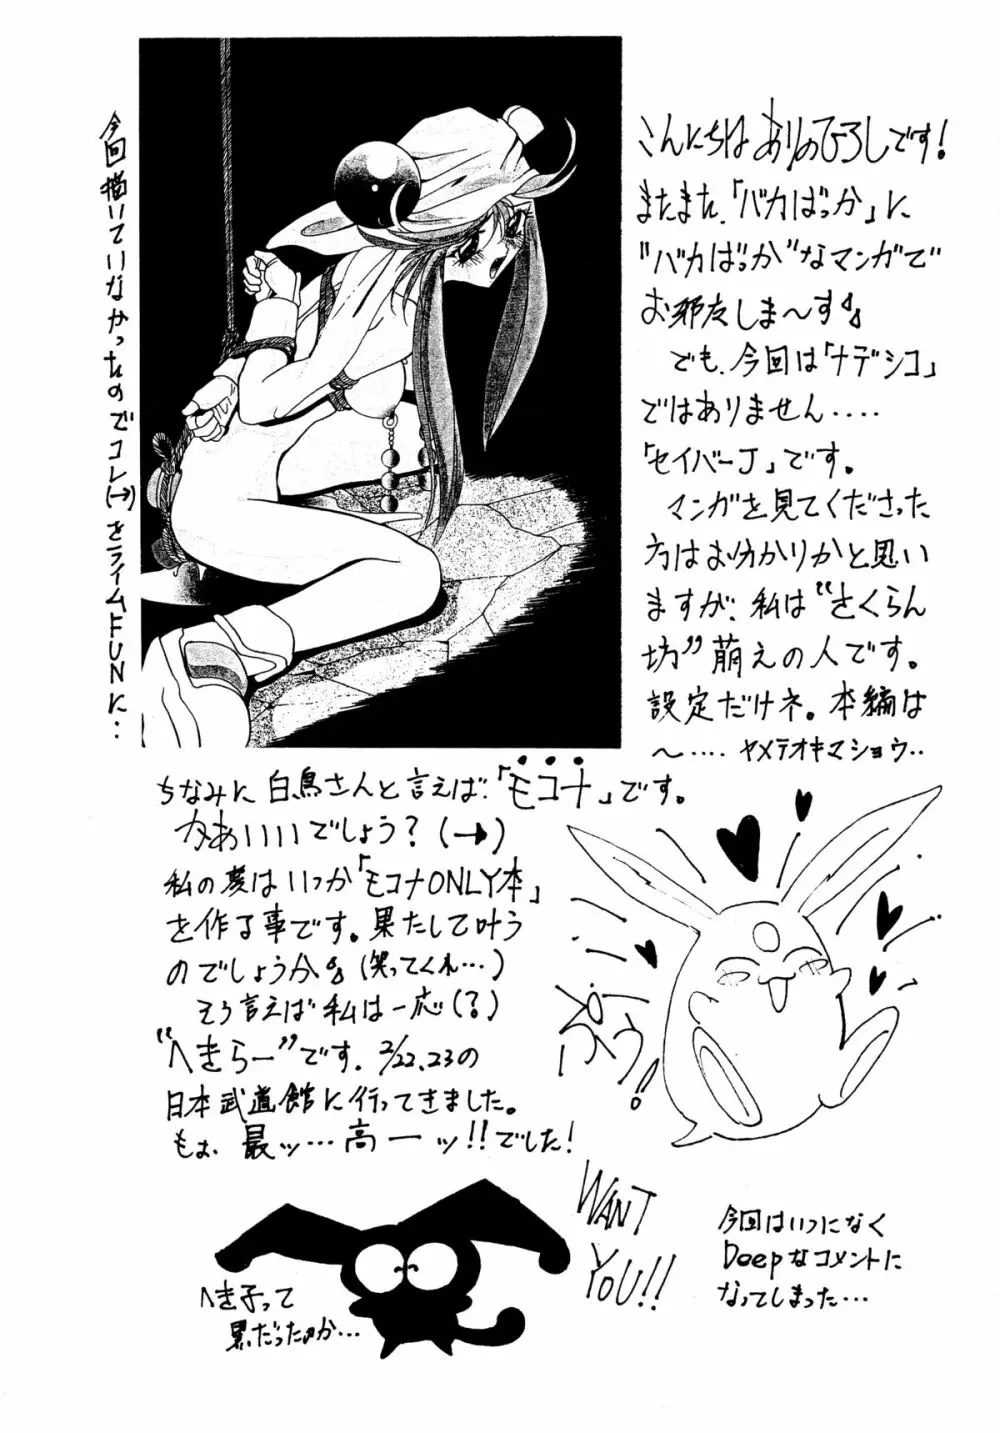 こんにちは ありのひろしです!
またまた、「バカばっか」に
"バカばっか"なマンガで
お邪友しま〜す。
でも、今回は「ナデシコ」
ではありません‥‥
「セイバーJ」です。
マンガを見てくださった
方はお分かりかと思い
ますが、私は"さくらん
坊"萌えの人です。
設定だけネ。本編は
〜‥‥ ヤメテオキマショウ‥
今回描いていなかったのでコレ(→)をライムFUNに‥
ちなみに 白鳥さんと言えば、「モコナ」です。
かあいいいでしょう?(→)
私の夢はいつか「モコナONLY本」
を作る事です。果たして叶う
のでしょうか。(笑ってくれ…)
そう言えば 私は一応(?)
"へきらー"です。2/22、23の
日本武道館に行ってきました。
もぉ、最ッ…高ーッ!!でした!
ぷぅ!
WANT
YOU!!
へき子って
黒だったのか…
今回はいつになく
Deepなコメントに
なってしまった…